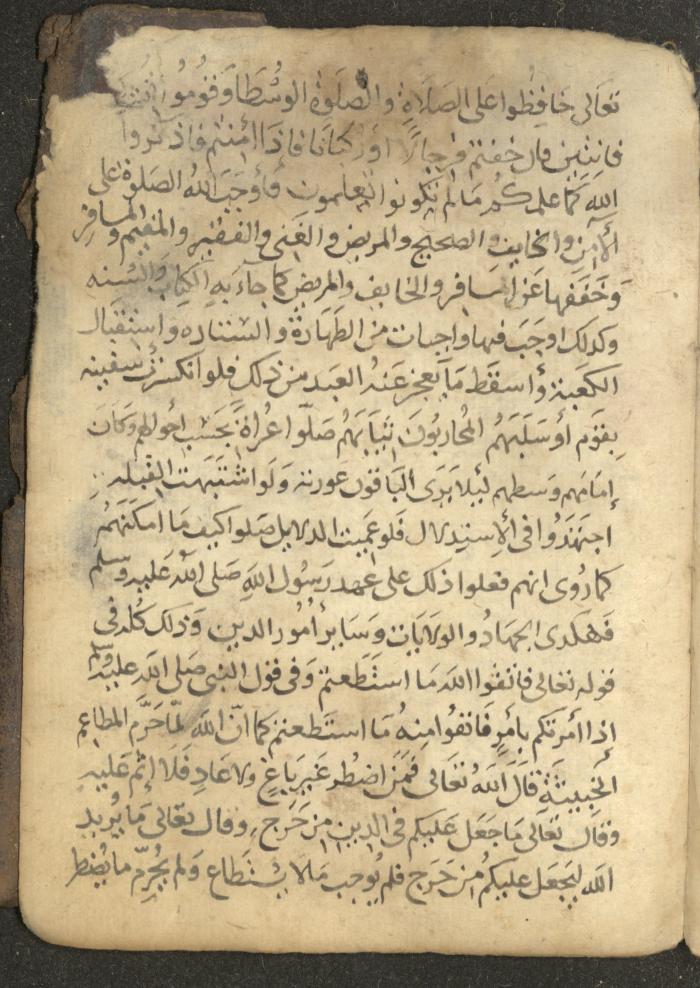 تعالى حَافِظُوا عَلَى الصَلَاةِ والصَّلَوٰة الوُسْطَا وَقُومُوا لله
قانِتِين فان خفتم فرجالًا اوْرُكبَانا فاذَا أَمنتم فاذكروا
اللهِ كَمَا علمكم مَا لم تكونوا تعلمون فأوجَبَ الله الصَلوة على
الآمِن والخايف والصحيح والمريض والغَنى والفقير والمقيم والمسافر
وَخَفَّفها عَن المسافر والخايف والمريض كما جآءَ به الكتاب والسنه
وكذلك اوجَبَ فيها واجبات من الطَهَارَة والستاره واستقبَال
الكعبة وأسقَط مَا يَعجز عَنهُ العَبد من ذلك فلو انكسرت سفينه
بِقوم أوسَلبَهُم المُحاربُونَ ثِيَابَهُم صَلّوا عُراةً بحَسْب احوالهم وَكان
إمَامَهم وسطهم لئِلا يَرَى البَاقون عورته وَلَو اشتبَهت القبله
اجتهَدُوا فى الأستِدلال فَلو عَميت الدلايل صَلوا كيف مَا امكنَهُم
كما رُوى انهم فعلوا ذلك على عهد رَسُول الله صَلى الله عَليه وسَلم
فَهكذى الجهَادُ والولايَات وَسَاير أُمُور الدين وَذلك كُله فى
قوله تعالى فاتقوا الله مَا استَطعتم وَفى قول النبى صَلى الله عليه وسلم
إذا أمَرتكم بأمرٍ فَاتوا مِنهُ مَا استَطعتم كما انّ الله لمّا حَرَّم المطاعم
الخَبيثَةِ قَالَ اللهُ تعَالى فَمَن اضطر غَير باغ ولا عَادٍ فَلَا إثم عَليه
وقَالَ تعَالى مَا جعَل عَليكم فى الدين من حَرَج وقال تعَالى مَا يُريد
الله ليَجعَل عليكمُ من حَرَج فلم يُوجب مَالا يستَطاع وَلم يُحرّم ما يُضطر